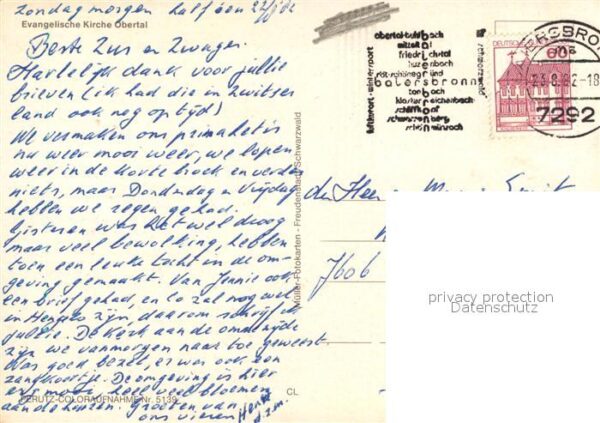 zondag morgen half een 22/8 '82
Evangelische Kirche Obertal
Beste Zus en Zwager.
Hartelijk dank voor jullie
brieven (ik had die in Zwitser
land ook nog op tijd)
We vermaken ons prima het is
nu weer mooi weer, we lopen
weer in de korte broek en verder
niets, maar Donderdag en Vrijdag
hebben we regen gehad.
Gisteren was het wel droog
maar veel bewolking, hebben
toen een leuke tocht in de om-
geving gemaakt. Van Jennie ook
een brief gehad, en Co zal nog wel
in Hengelo zijn, daarom schrijf ik
jullie. De Kerk aan de ommezijde
zijn we vanmorgen naar toe geweest.
Was goed bezet, er was ook een
zangkoortje. De omgeving is hier
erg mooi, heel veel bloemen
PERUTZ-COLORAUFNAHME Nr. 5139
CL
aan de huizen. Groeten van
ons vieren
Müller-Fotokarten - Freudenstadt/Schwarzwald
obertal-buhlbach
mitteltal
friedrichstal
huzenbach
röt-schönegründ
baiersbronn
tonbach
klosterreichenbach
schönmünzach
schwarzenberg
luftkurort-wintersport
schwarzwald
DEUTSCHE
60
23.8.82-18
7292
den Heer
7606
privacy protection
Datenschutz